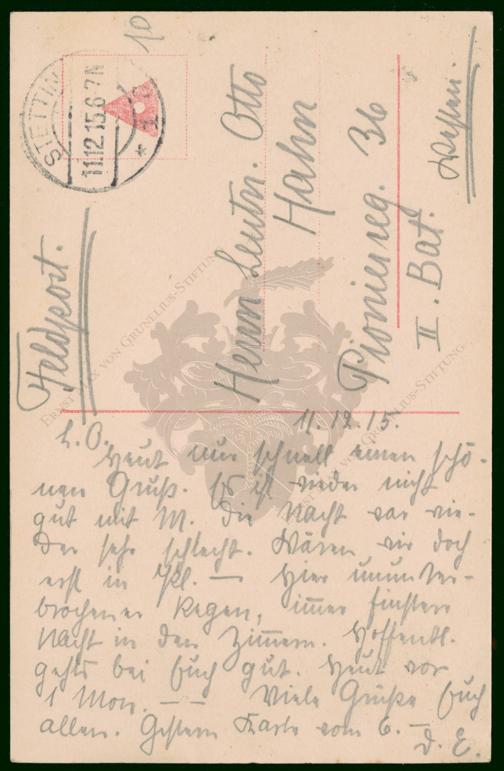 10
STETTIN
11.12.15.6-7N
* 1 *
Feldpost.
Herrn Leutn. Otto
Hahn
Pionierreg. 36
II. Bat.
Westen.
ERNST MAX VON GRUNELIUS-STIFTUNG
11.12.15.
L. O.
Heut nur schnell einen schö-
nen Gruß. Es ist wieder nicht
gut mit M. Die Nacht war wie-
der sehr schlecht. Wären wir doch
erst in Kl. — Hier ununter-
brochener Regen, immer finstere
Nacht in den Zimmern. Hoffentl.
gehts bei Euch gut. Heut vor
1 Mon. — — Viele Grüße Euch
allen. Gestern Karte vom 6. —
D. E.